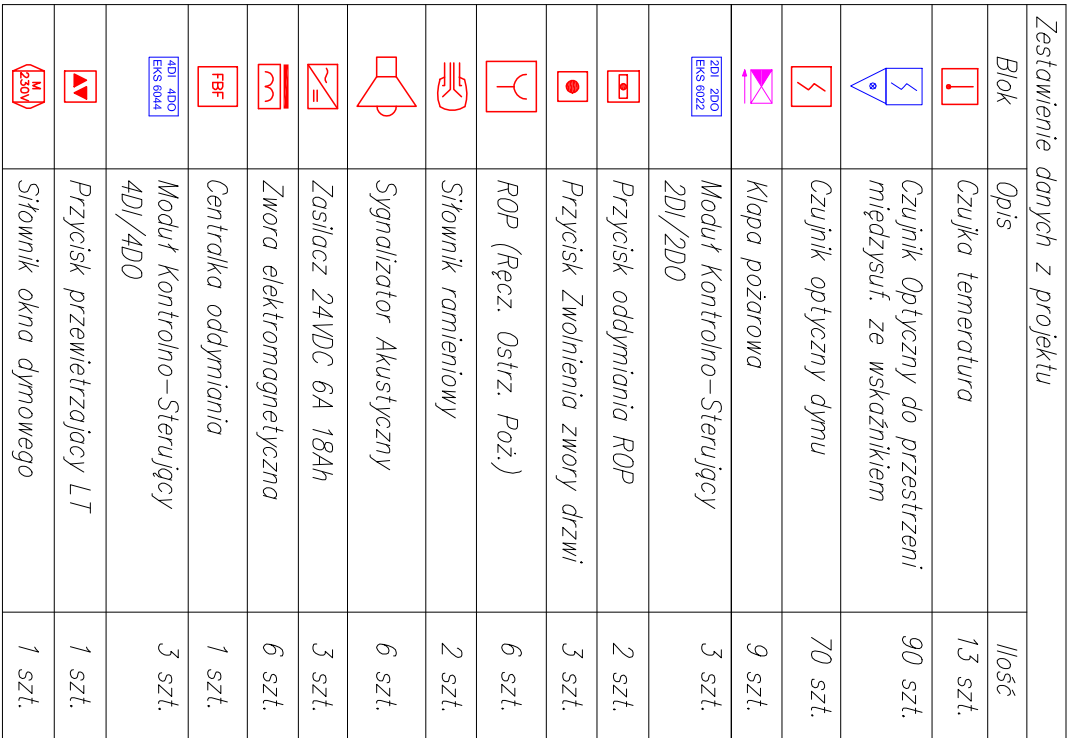 Zestawienie danych z projektu
Blok Opis Ilość
Czujka temeratura 13 szt.
Czujnik Optyczny do przestrzeni
międzysuf. ze wskaźnikiem
90 szt.
Czujnik optyczny dymu 70 szt.
Klapa pożarowa 9 szt.
2DI 2DO
EKS 6022
Moduł Kontrolno-Sterujący
2DI/2DO
3 szt.
Przycisk oddymiania ROP 2 szt.
Przycisk Zwolnienia zwory drzwi 3 szt.
ROP (Ręcz. Ostrz. Poż.) 6 szt.
Siłownik ramieniowy 2 szt.
Sygnalizator Akustyczny 6 szt.
Zasilacz 24VDC 6A 18Ah 3 szt.
Zwora elektromagnetyczna 6 szt.
FBF Centralka oddymiania 1 szt.
4DI 4DO
EKS 6044
Moduł Kontrolno-Sterujący
4DI/4DO
3 szt.
Przycisk przewietrzajacy LT 1 szt.
M
230V
Siłownik okna dymowego 1 szt.